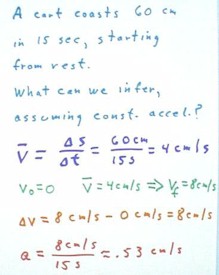 A cart coasts 60 cm
in 15 sec, starting
from rest.
What can we infer,
assuming const. accel.?
V̅ = Δs/Δt = 60cm/15s = 4 cm/s
V₀=0 V̅=4cm/s => V_f=8cm/s
ΔV = 8 cm/s - 0 cm/s = 8cm/s
a = 8cm/s / 15 s = .53 cm/s